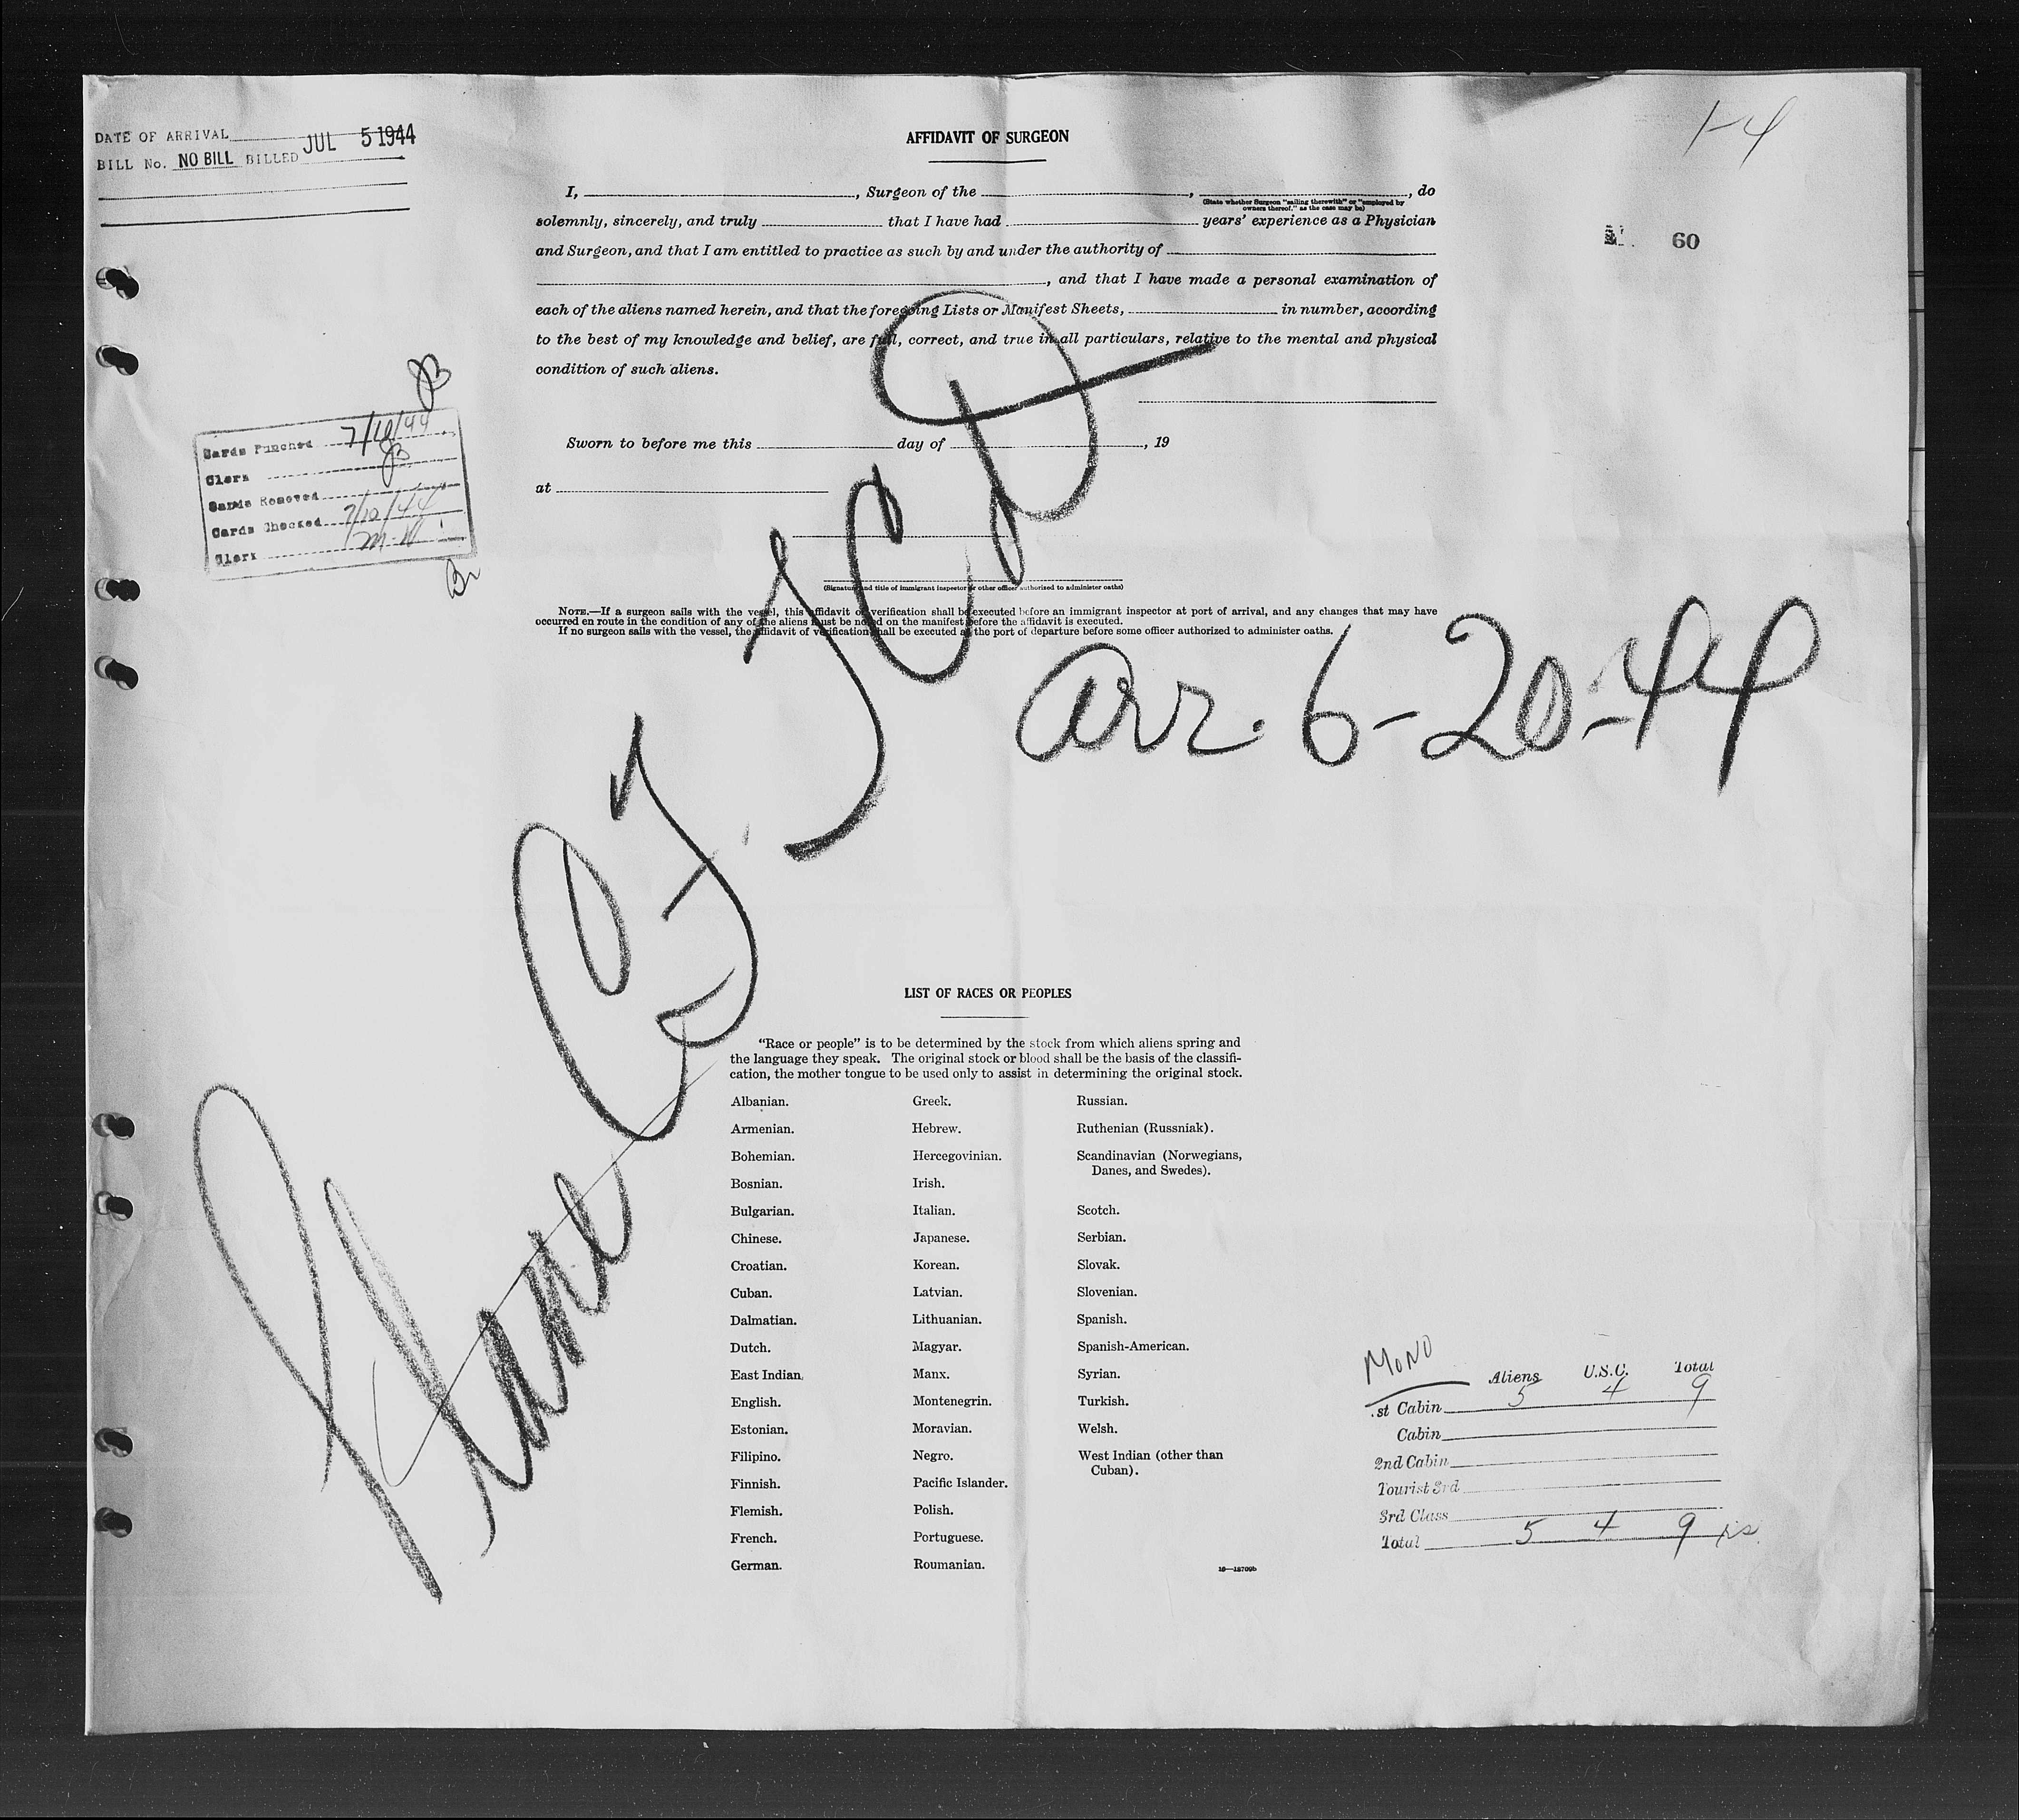 DATE OF ARRIVAL
BILL No. NO BILL BILLED JUL 5 1944
1-4
60
AFFIDAVIT OF SURGEON
I, , Surgeon of the , , do
(State whether Surgeon "sailing therewith" or "employed by
owners thereof," as the case may be)
solemnly, sincerely, and truly that I have had years' experience as a Physician
and Surgeon, and that I am entitled to practice as such by and under the authority of
, and that I have made a personal examination of
each of the aliens named herein, and that the foregoing Lists or Manifest Sheets, in number, according
to the best of my knowledge and belief, are full, correct, and true in all particulars, relative to the mental and physical
condition of such aliens.
Sworn to before me this day of , 19
at
(Signature and title of immigrant inspector or other officer authorized to administer oaths)
NOTE.—If a surgeon sails with the vessel, this affidavit or verification shall be executed before an immigrant inspector at port of arrival, and any changes that may have
occurred en route in the condition of any of the aliens must be noted on the manifest before the affidavit is executed.
If no surgeon sails with the vessel, the affidavit of verification shall be executed at the port of departure before some officer authorized to administer oaths.
Cards Punched 7/10/44
Clerk
Cards Removed
Cards Checked 7/10/44
Clerk
Plane
arr. 6-20-44
LIST OF RACES OR PEOPLES
"Race or people" is to be determined by the stock from which aliens spring and
the language they speak. The original stock or blood shall be the basis of the classifi-
cation, the mother tongue to be used only to assist in determining the original stock.
Albanian.
Armenian.
Bohemian.
Bosnian.
Bulgarian.
Chinese.
Croatian.
Cuban.
Dalmatian.
Dutch.
East Indian.
English.
Estonian.
Filipino.
Finnish.
Flemish.
French.
German.
Greek.
Hebrew.
Hercegovinian.
Irish.
Italian.
Japanese.
Korean.
Latvian.
Lithuanian.
Magyar.
Manx.
Montenegrin.
Moravian.
Negro.
Pacific Islander.
Polish.
Portuguese.
Roumanian.
Russian.
Ruthenian (Russniak).
Scandinavian (Norwegians,
Danes, and Swedes).
Scotch.
Serbian.
Slovak.
Slovenian.
Spanish.
Spanish-American.
Syrian.
Turkish.
Welsh.
West Indian (other than
Cuban).
16—18709b
MONO
Aliens U.S.C. Total
st Cabin 5 4 9
Cabin
2nd Cabin
Tourist 3rd
3rd Class
Total 5 4 9